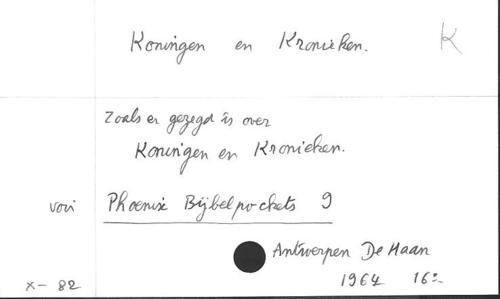 Koningen en Kronieken. K
Zoals er gezegd is over
Koningen en Kronieken.
voir Phoenix Bijbelpockets 9
Antwerpen De Haan
1964 16º
X- 82